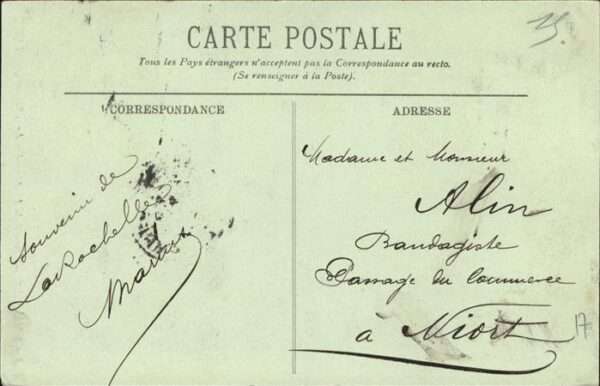 CARTE POSTALE
Tous les Pays étrangers n'acceptent pas la Correspondance au recto.
(Se renseigner à la Poste).
CORRESPONDANCE
Souvenir de
La Rochelle
ADRESSE
Madame et Monsieur
Alin
Bandagiste
Passage du Commerce
à Niort
17